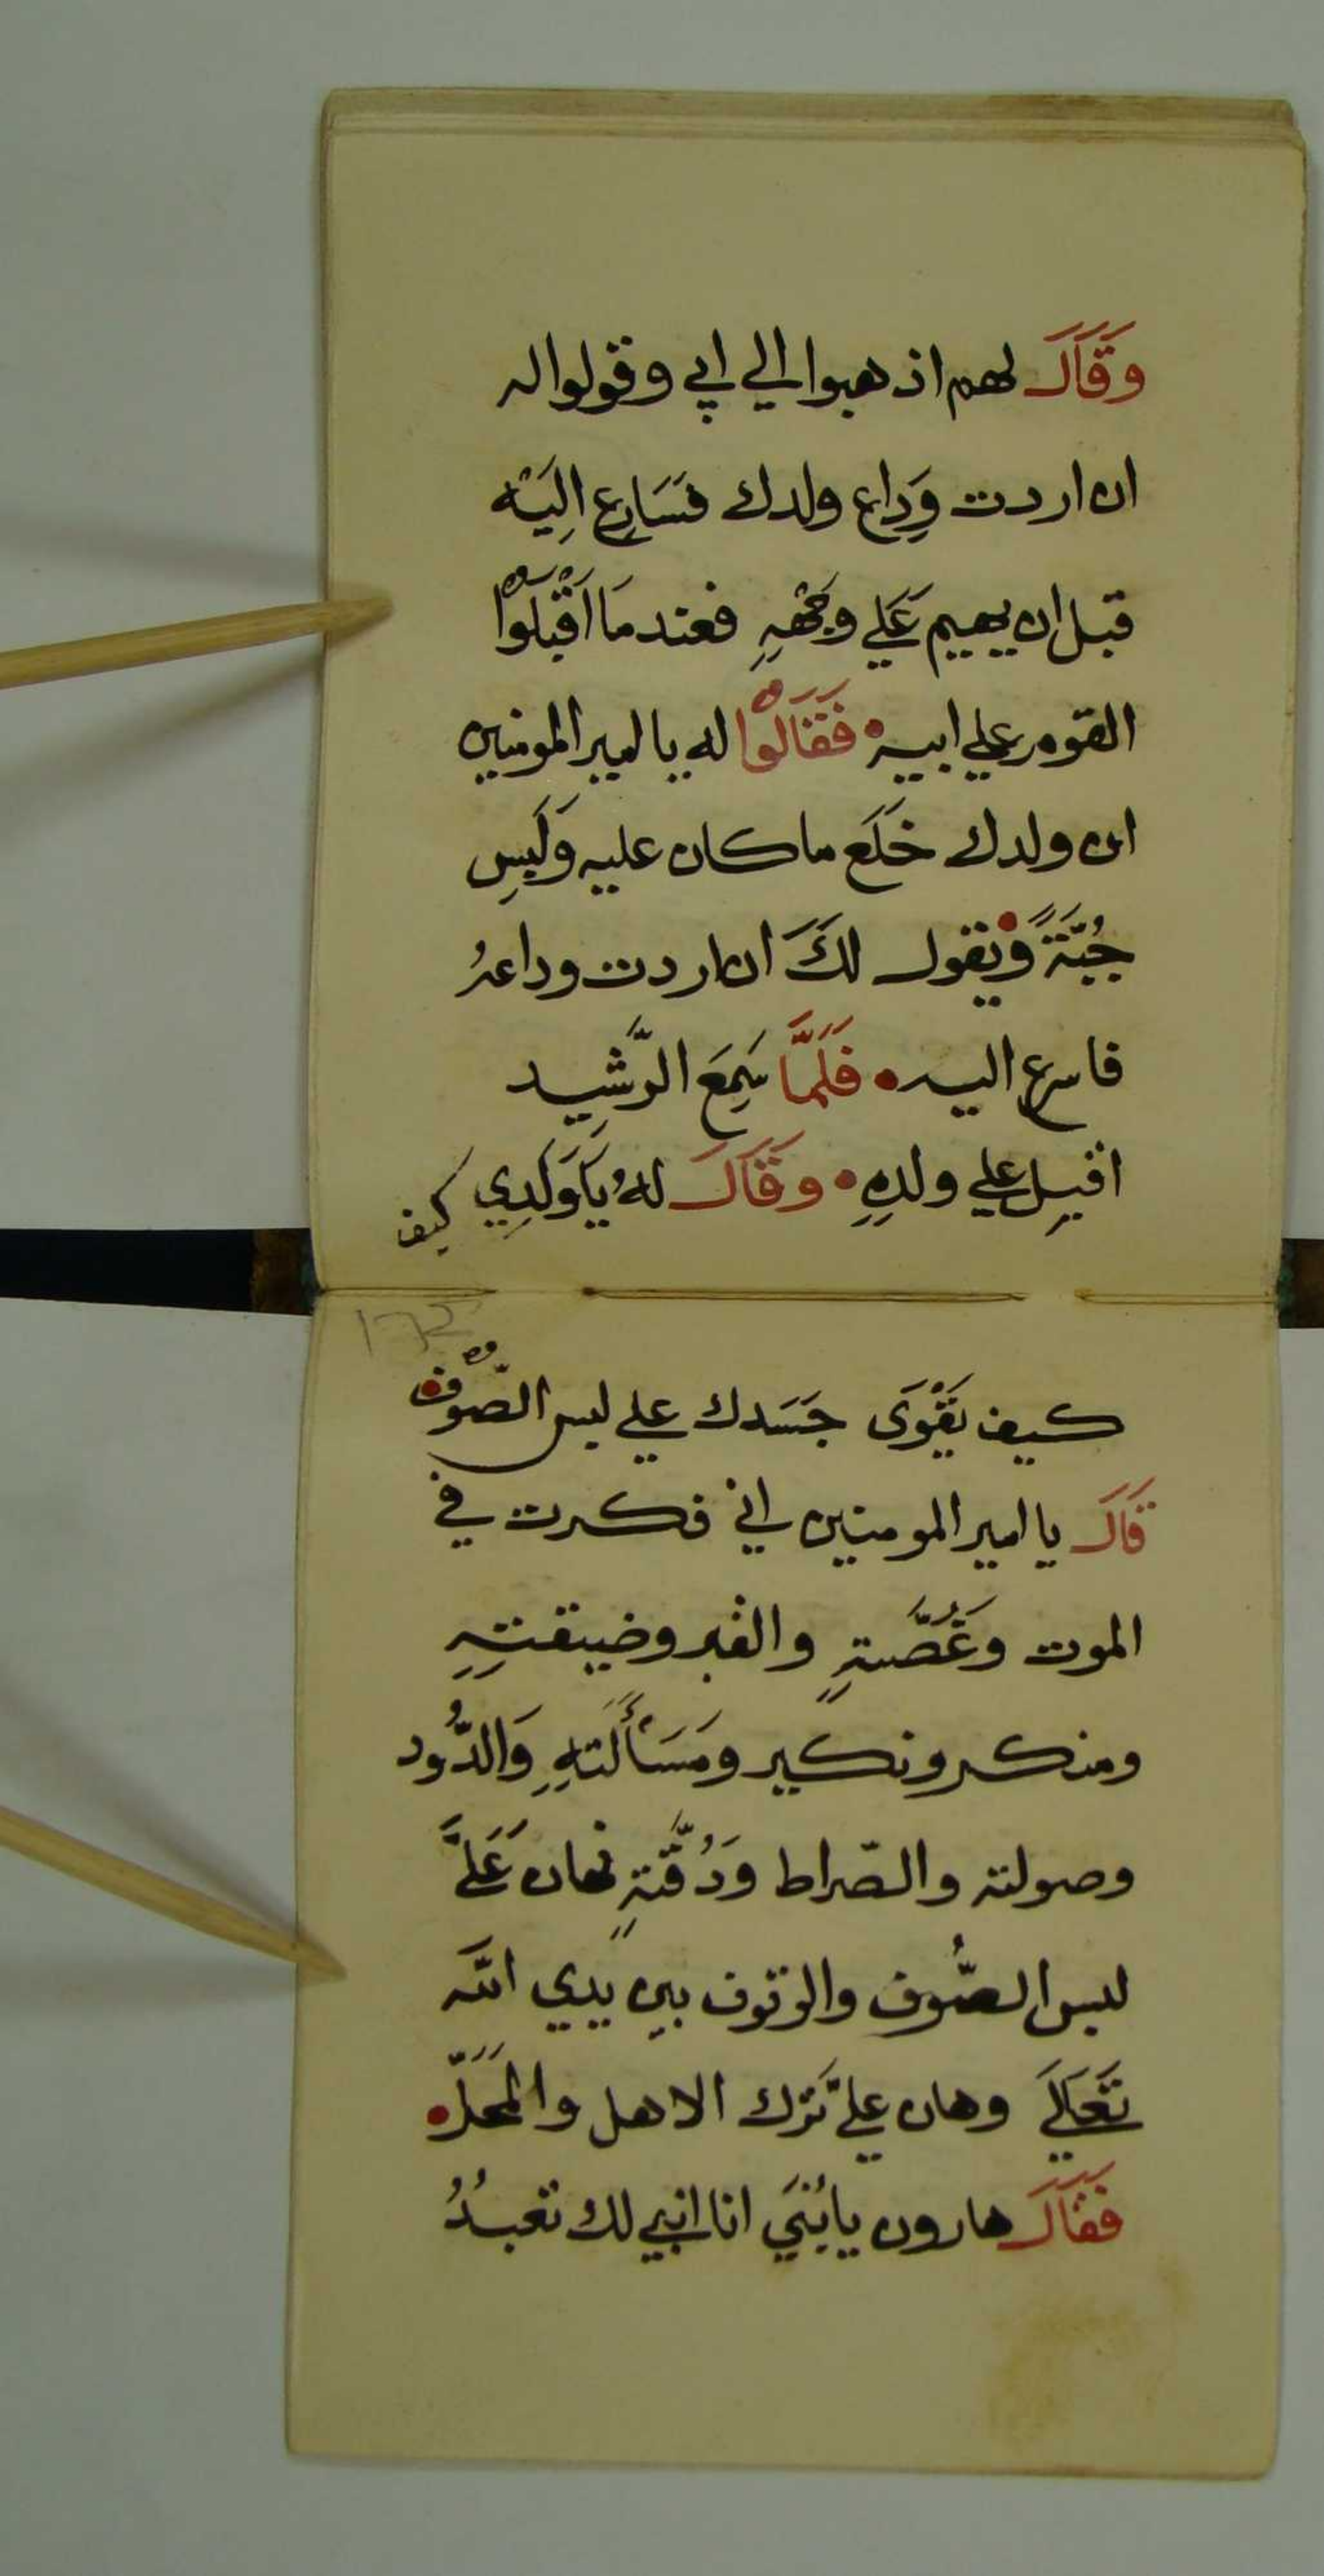 وَقَالَ لهم اذهبوا الي ابي وقولوا له
ان اردت وِداع ولدك فسَارِع اِليَه
قبل ان يهيم عَلَي وجْههِ فعندمَا اَقْبَلُوا
القوم علي ابيه فَقَالُوا له يا امير المومنين
ان ولدك خَلَع ما كان عليه وَلَبِس
جُبَّةً ويقول لَكَ ان اردت وداعهُ
فاسرع اليه فَلَمَّا سَمِعَ الرَّشيد
اقبل علي ولدهِ وَقَالَ لهُ يَا وَلَدِي كيف
172
كيف يَقْوَى جَسَدك علي لبس الصُّوف
قَالَ يا امير المومنين اني فكرت في
الموت وَغُصَّتهٍ والقبر وضيقتهِ
ومنكر ونكير ومَسَأَلَتهِ وَالدُّود
وصولته والصّراط وَدُقَّتهٍ فهان عَلَيَّ
لبس الصُّوف والوقوف بين يدي الله
تَعَالَي وهان عليَّ تَرك الاهل والمَحَلّ
فَقَالَ هارون يا بُنَيَ انا ابني لك تعبدُ